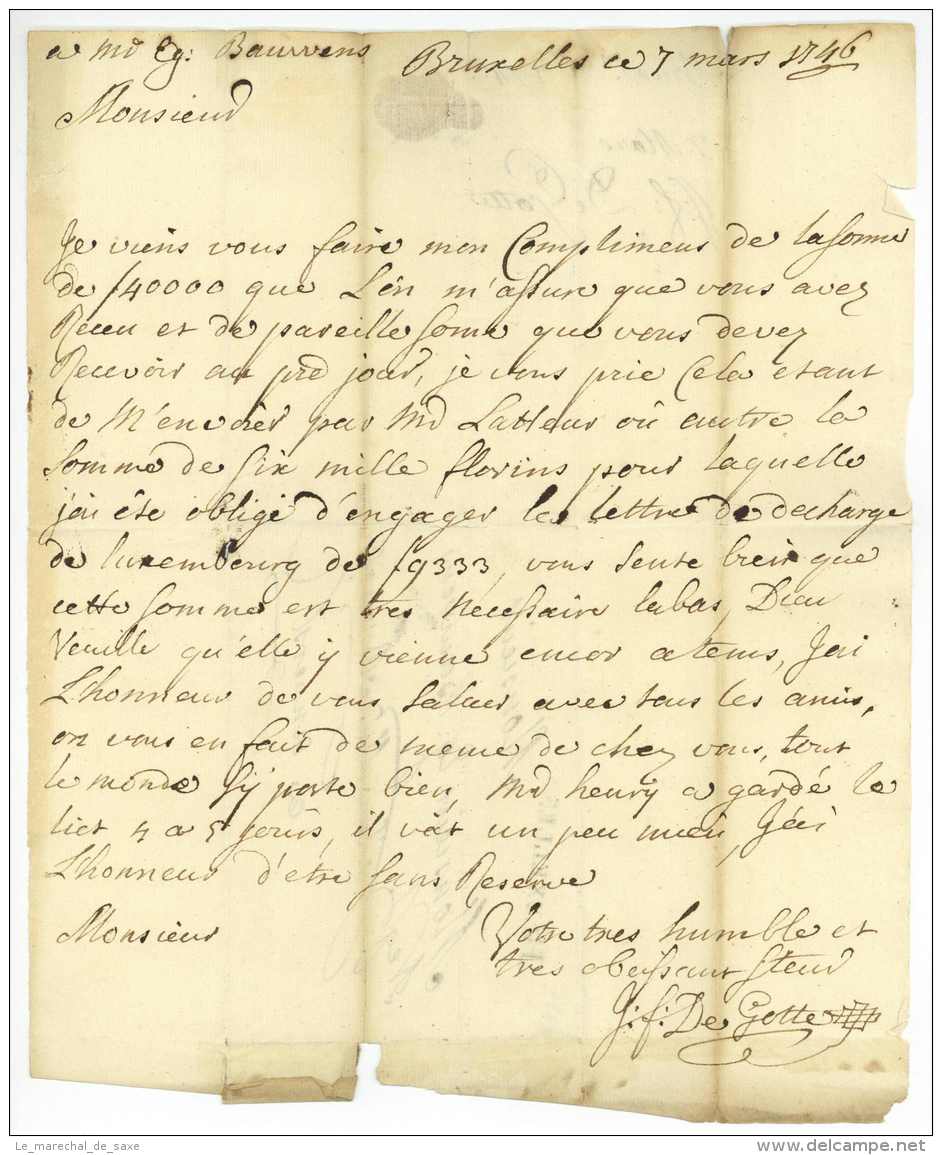 a Md Eg: Bauwens
Bruxelles ce 7 mars 1746
Monsieur
Je viens vous faire mon Complimens de la some
de f40000 que L'on m'assure que vous avez
Receu et de pareille some que vous devez
Recevoir au prd jour, je vous prie Cela etant
de M'envoier par Md Latteur où autre la
somme de six mille florins pour laquelle
j'ai ête obligé d'engager les lettre de decharge
de luxembourg de f9333, vous sente bien que
cette somme est tres necessaire labas, Dieu
Veuille qu'elle ÿ vienne encor a tems, J'ai
L'honneur de vous saluer avec tous les amis,
on vous en fait de meme de chez vous, tout
le monde s'y porte bien, Md henrÿ a gardé le
lict 4 a 5 jours, il vat un peu mieu, J'ai
L'honneur d'etre sans Reserve
Monsieur
Votre tres humble et
tres obeissant steur
J: f: De Gotte
Le_marechal_de_saxe
delcampe.net